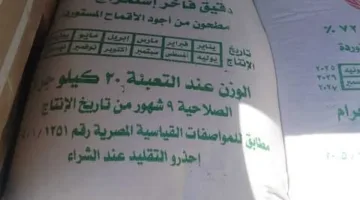 دقيق فاخر إستخراج
مطحون من أجود الأقماح المستوردة
تاريخ الإنتاج
يناير فبراير مارس ابريل مايو
يوليه أغسطس سبتمبر أكتوبر نوفمبر
الوزن عند التعبئة ٢٠ كيلو
الصلاحية ٩ شهور من تاريخ الإنتاج
مطابق للمواصفات القياسية المصرية رقم ١٢٥١/١
احذروا التقليد عند الشراء
٧٢ ٪
٢٠٢٥
٢٠٢٦
٢٠٢٧